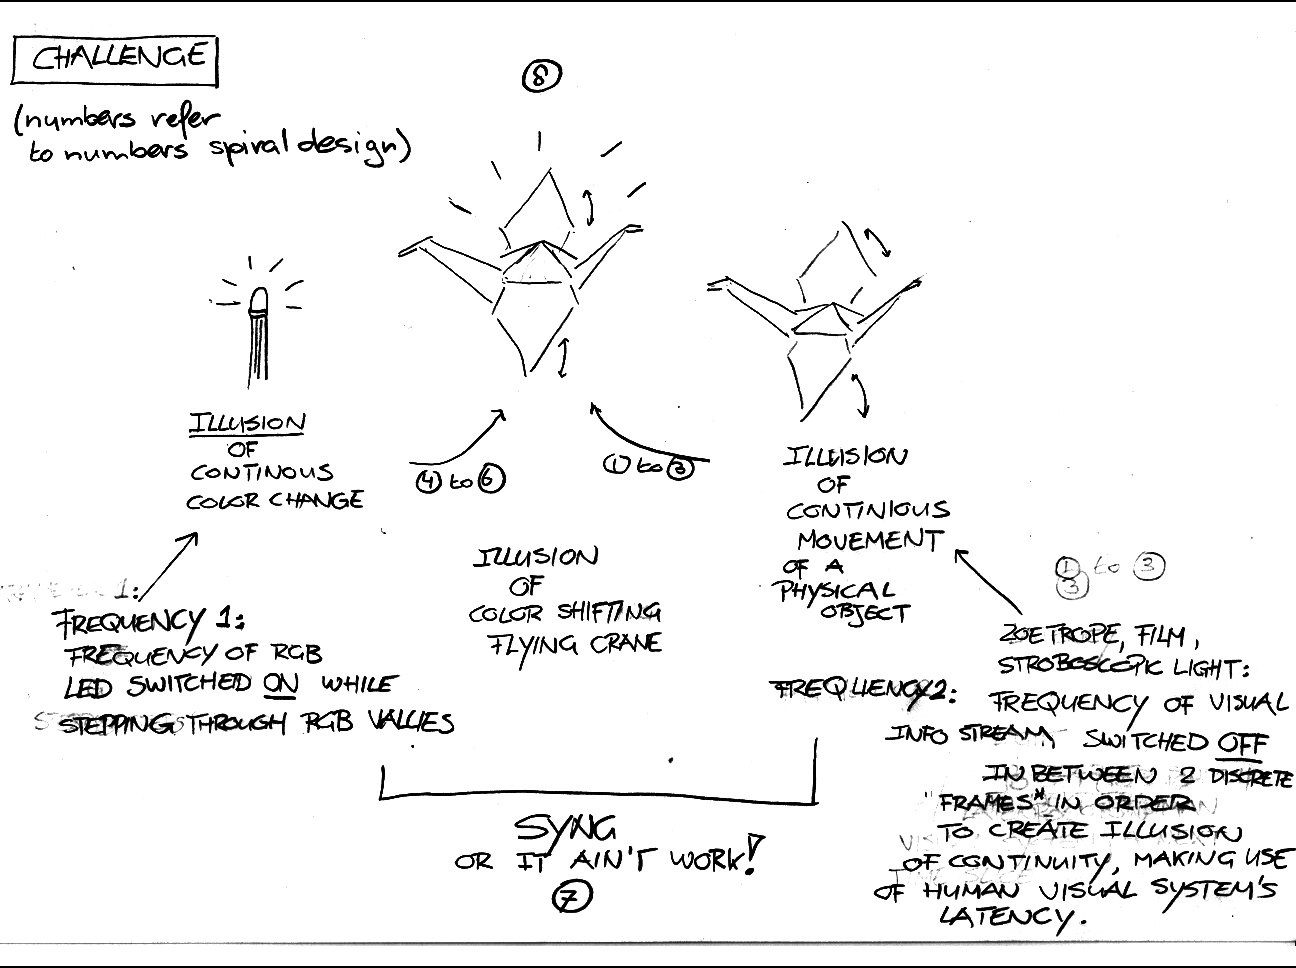 CHALLENGE
(numbers refer
to numbers spiral design)
8
ILLUSION
OF
CONTINOUS
COLOR CHANGE
4 to 6
1 to 3
ILLUSION
OF
CONTINIOUS
MOVEMENT
OF A
PHYSICAL
OBJECT
ILLUSION
OF
COLOR SHIFTING
FLYING CRANE
1:
FREQUENCY 1:
FREQUENCY OF RGB
LED SWITCHED ON WHILE
STEPPING THROUGH RGB VALUES
1 to 3
3
ZOETROPE, FILM,
STROBOSCOPIC LIGHT:
FREQUENCY 2: FREQUENCY OF VISUAL
INFO STREAM, SWITCHED OFF
IN BETWEEN 2 DISCRETE
"FRAMES" IN ORDER
TO CREATE ILLUSION
OF CONTINUITY, MAKING USE
OF HUMAN VISUAL SYSTEM'S
LATENCY.
SYNC
OR IT AIN'T WORK!
7